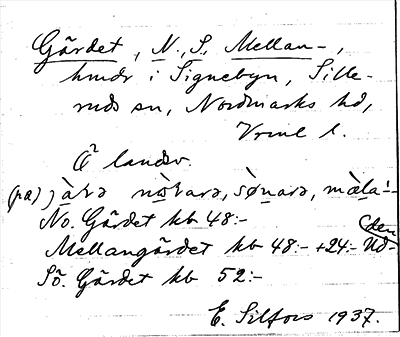 Gärdet, N., S., Mellan-,
hmdr i Signebyn, Sille-
ruds sn, Nordmarks hd,
Vrml l.
Ö landsv.
(pa) jàɫə nòɫarə, sònarə, mæ̀la!-
No. Gärdet kb 48:-
Mellangärdet kb 48:- +24:- Ud-
den
Sö. Gärdet kb 52:-
E. Silfors 1937.